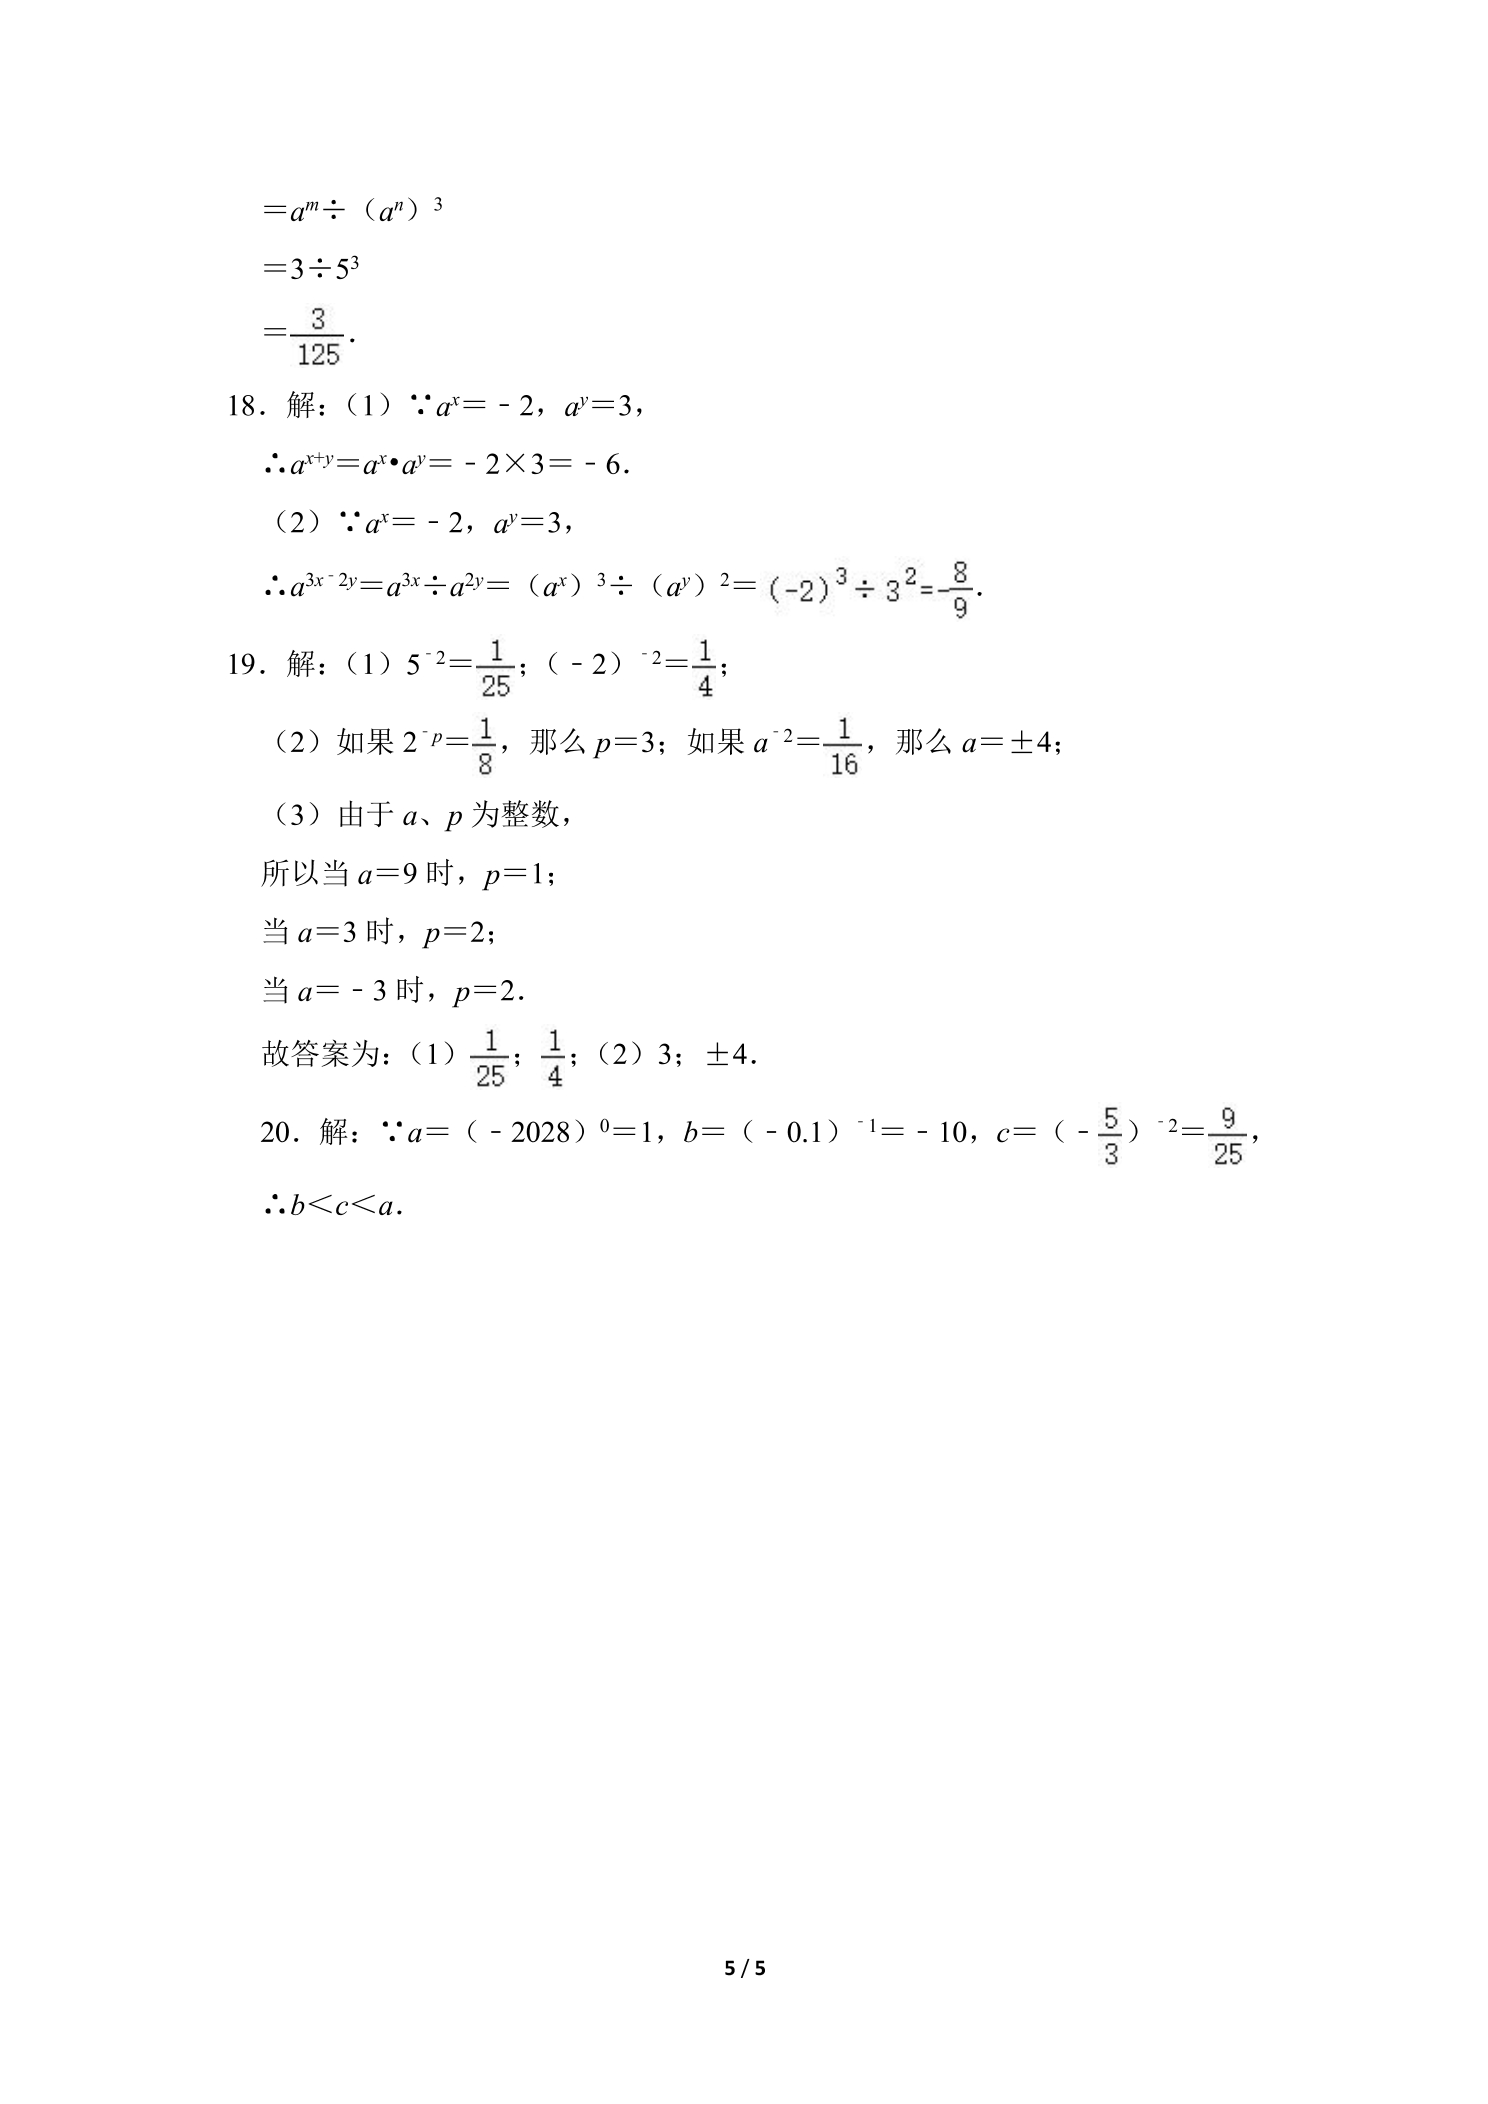 ＝aᵐ÷（aⁿ）³
＝3÷5³
＝3/125．
18．解：（1）∵aˣ＝﹣2，aʸ＝3，
∴aˣ⁺ʸ＝aˣ•aʸ＝﹣2×3＝﹣6．
（2）∵aˣ＝﹣2，aʸ＝3，
∴a³ˣ﹣²ʸ＝a³ˣ÷a²ʸ＝（aˣ）³÷（aʸ）²＝(-2)³÷3²=-8/9．
19．解：（1）5﹣²＝1/25；（﹣2）﹣²＝1/4；
（2）如果 2﹣ᵖ＝1/8，那么 p＝3；如果 a﹣²＝1/16，那么 a＝±4；
（3）由于 a、p 为整数，
所以当 a＝9 时，p＝1；
当 a＝3 时，p＝2；
当 a＝﹣3 时，p＝2．
故答案为：（1）1/25；1/4；（2）3；±4．
20．解：∵a＝（﹣2028）⁰＝1，b＝（﹣0.1）﹣¹＝﹣10，c＝（﹣5/3）﹣²＝9/25，
∴b＜c＜a．
5 / 5